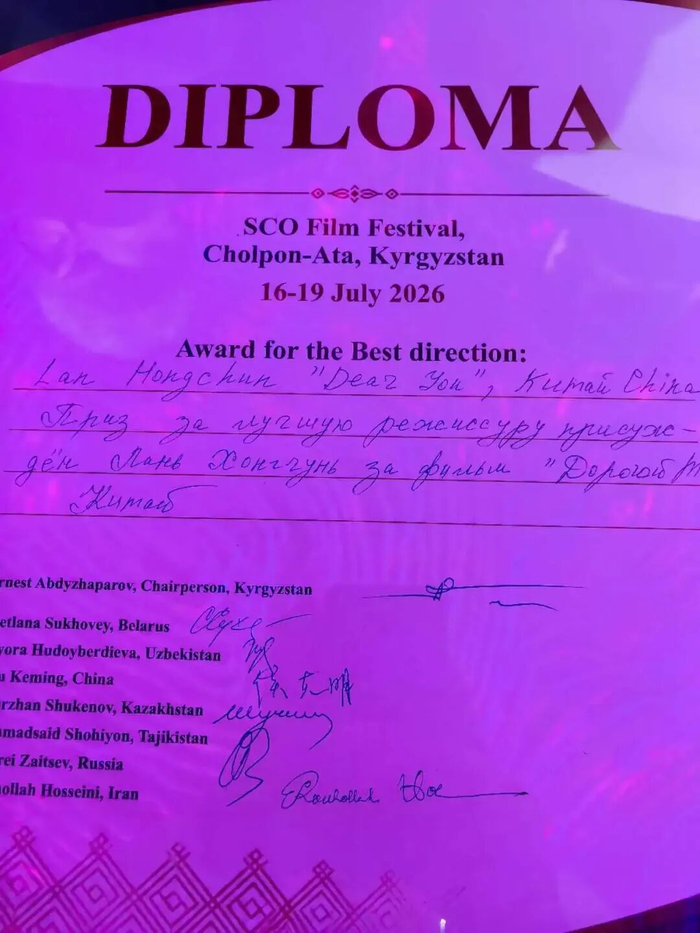 DIPLOMA
SCO Film Festival,
Cholpon-Ata, Kyrgyzstan
16-19 July 2026
Award for the Best direction:
Lan Hongchun "Dear You", Китай China
Приз за лучшую режиссуру присуж-
дён Лань Хончунь за фильм "Дорогой
Китай
rnest Abdyzhaparov, Chairperson, Kyrgyzstan
etlana Sukhovey, Belarus
yora Hudoyberdieva, Uzbekistan
Keming, China
rzhan Shukenov, Kazakhstan
madsaid Shohiyon, Tajikistan
rei Zaitsev, Russia
ollah Hosseini, Iran